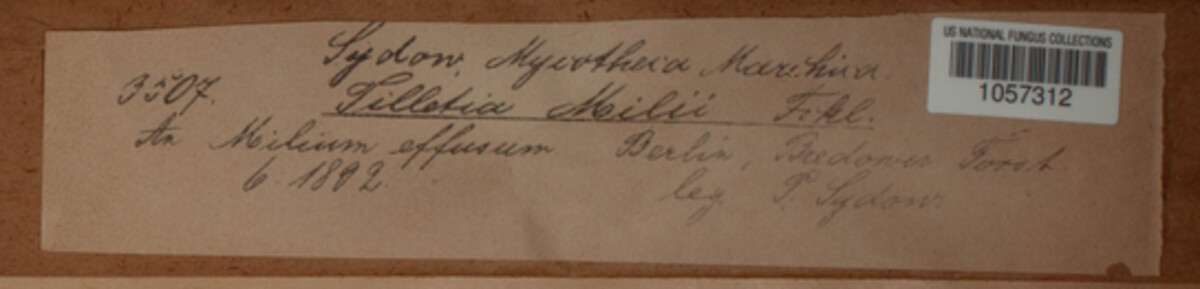 Sydow, Mycotheca Marchica.
3507. Tilletia Milii Fckl.
An Milium effusum. Berlin, Bredower Forst
6. 1892. leg. P. Sydow.
US NATIONAL FUNGUS COLLECTIONS
1057312